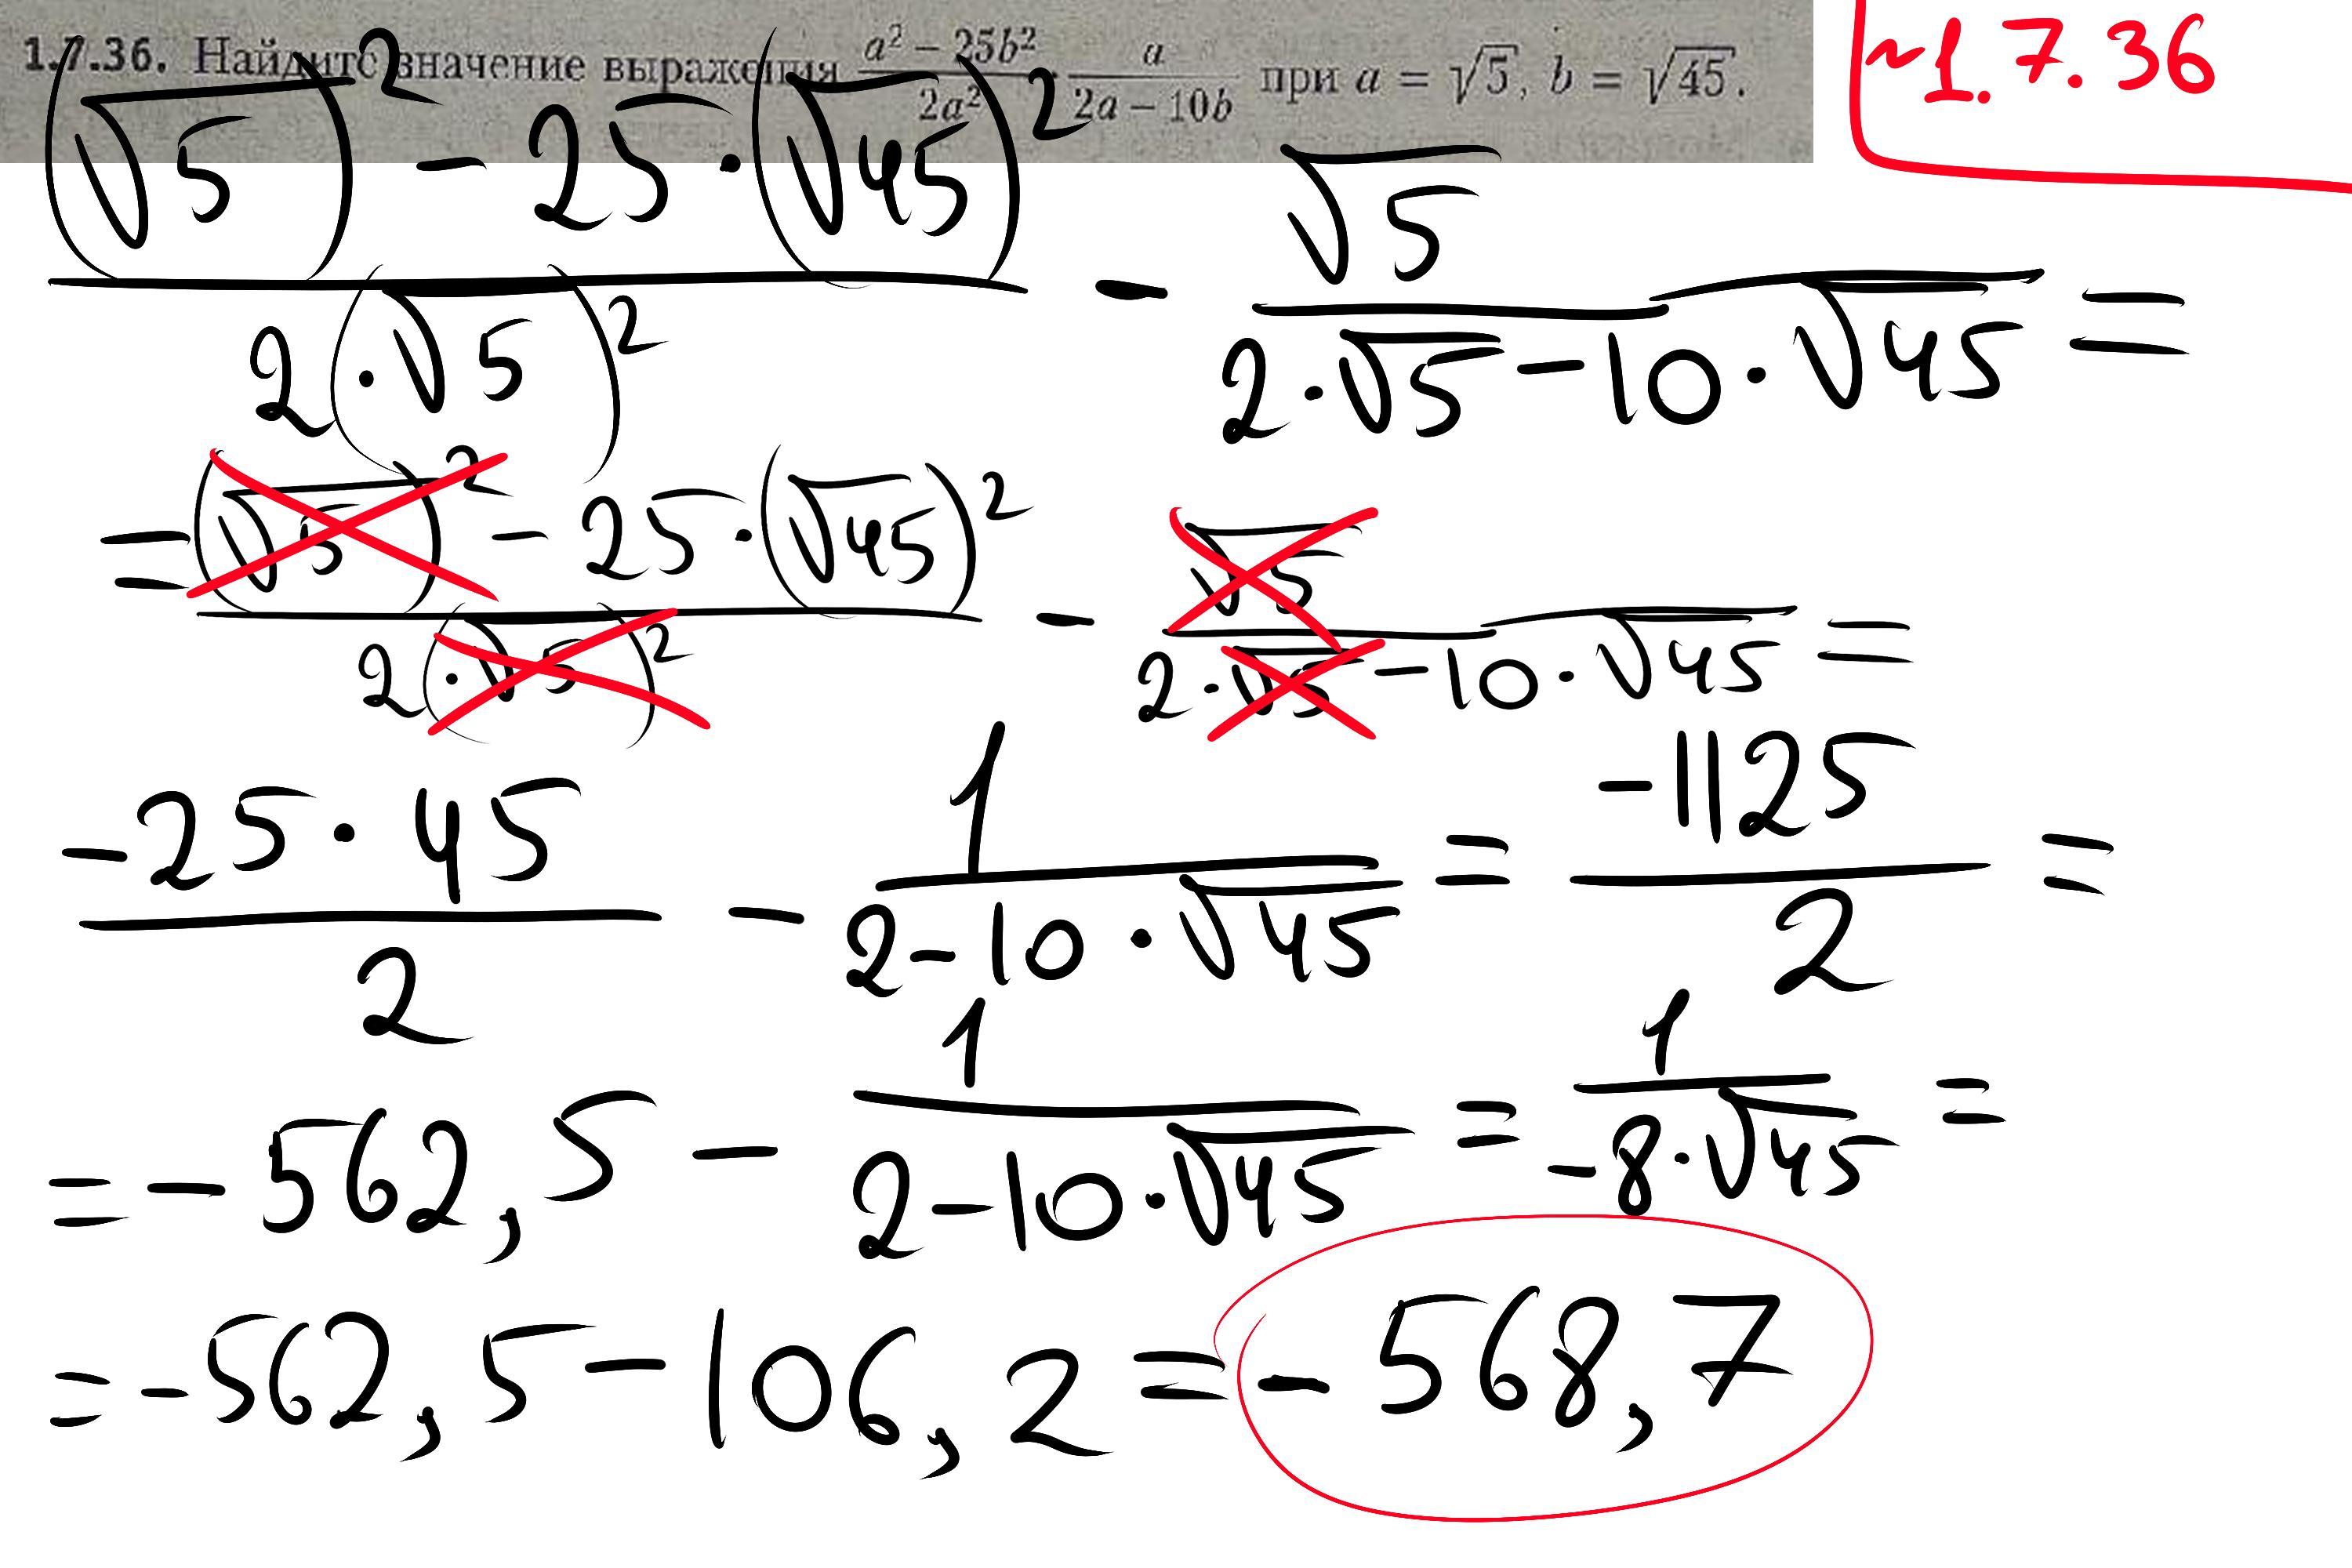 1.7.36. Найдите значение выражения (a² − 25b²)/(2a²) · a/(2a − 10b) при a = √5, b = √45.
~1.7.36
((√5)² − 25·(√45)²)/(2(·√5)²) − √5/(2·√5−10·√45) =
= ((√5)² − 25·(√45)²)/(2(·√5)²) − √5/(2·√5−10·√45) =
(−25·45)/2 − 1/(2−10·√45) = −1125/2 =
= −562,5 − 1/(2−10·√45) = 1/(−8·√45) =
= −562,5−106,2 = − 568,7